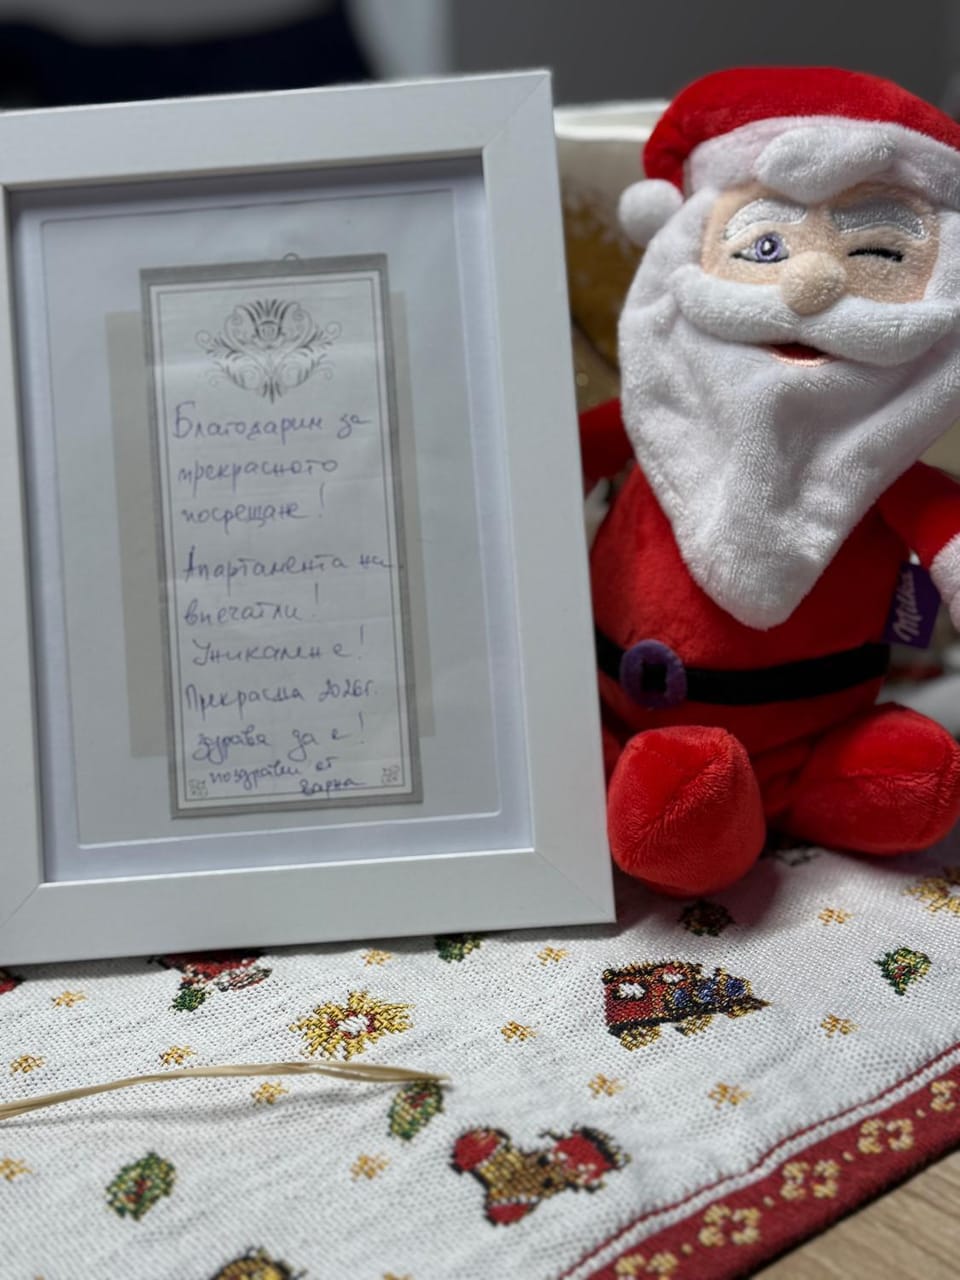 Благодарим за
прекрасното
посрещане!
Апартамента ни
впечатли!
Уникален е!
Прекрасна 2026г.
здрава да е!
поздрави от
Варна
Milka